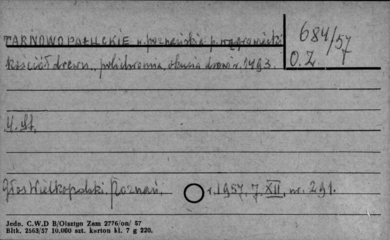 TARNOWO PAŁUCKIE w. poznańskie p. wągrowiecki
684/57
O.Z
kościół drewn., polichromia, okucia drzwi r. 1493.
M. St.
Głos Wielkopolski, Poznań, r. 1957. 7. XII, nr. 291.
Jedn. C.W.D B/Olsztyn Zam 2776/on/ 57
Bltk. 2563/57 10.000 szt. karton kl. 7 g 220.